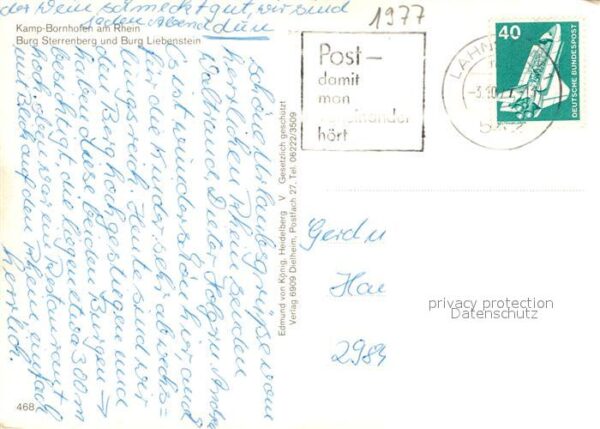 der Wein schmeckt gut, wir sind
jeden Abend dun
Kamp-Bornhofen am Rhein
Burg Sterrenberg und Burg Liebenstein
1977
Post –
damit
man
voneinander
hört
LAHNS
-3.10.77
40
DEUTSCHE BUNDESPOST
Schöne Urlaubsgrüße vom
herrlichen Rhein senden
Walter, Dieter, Holger u. Andre
Es ist wunderschön hier, auch
für die Kinder sehr abwechs=
lungsreich. Heute sind wir
den Berg hochgestiegen und
haben diese beiden Burgen →
besichtigt, die liegen etwa 300 m
hoch, dort waren Restaurant
mit Blick auf den Rhein, einfach
herrlich.
Edmund von König, Heidelberg V Gesetzlich geschützt
Verlag 6909 Dielheim, Postfach 27, Tel. 06222/3509
Gerd u
Hae
2984
privacy protection
Datenschutz
468